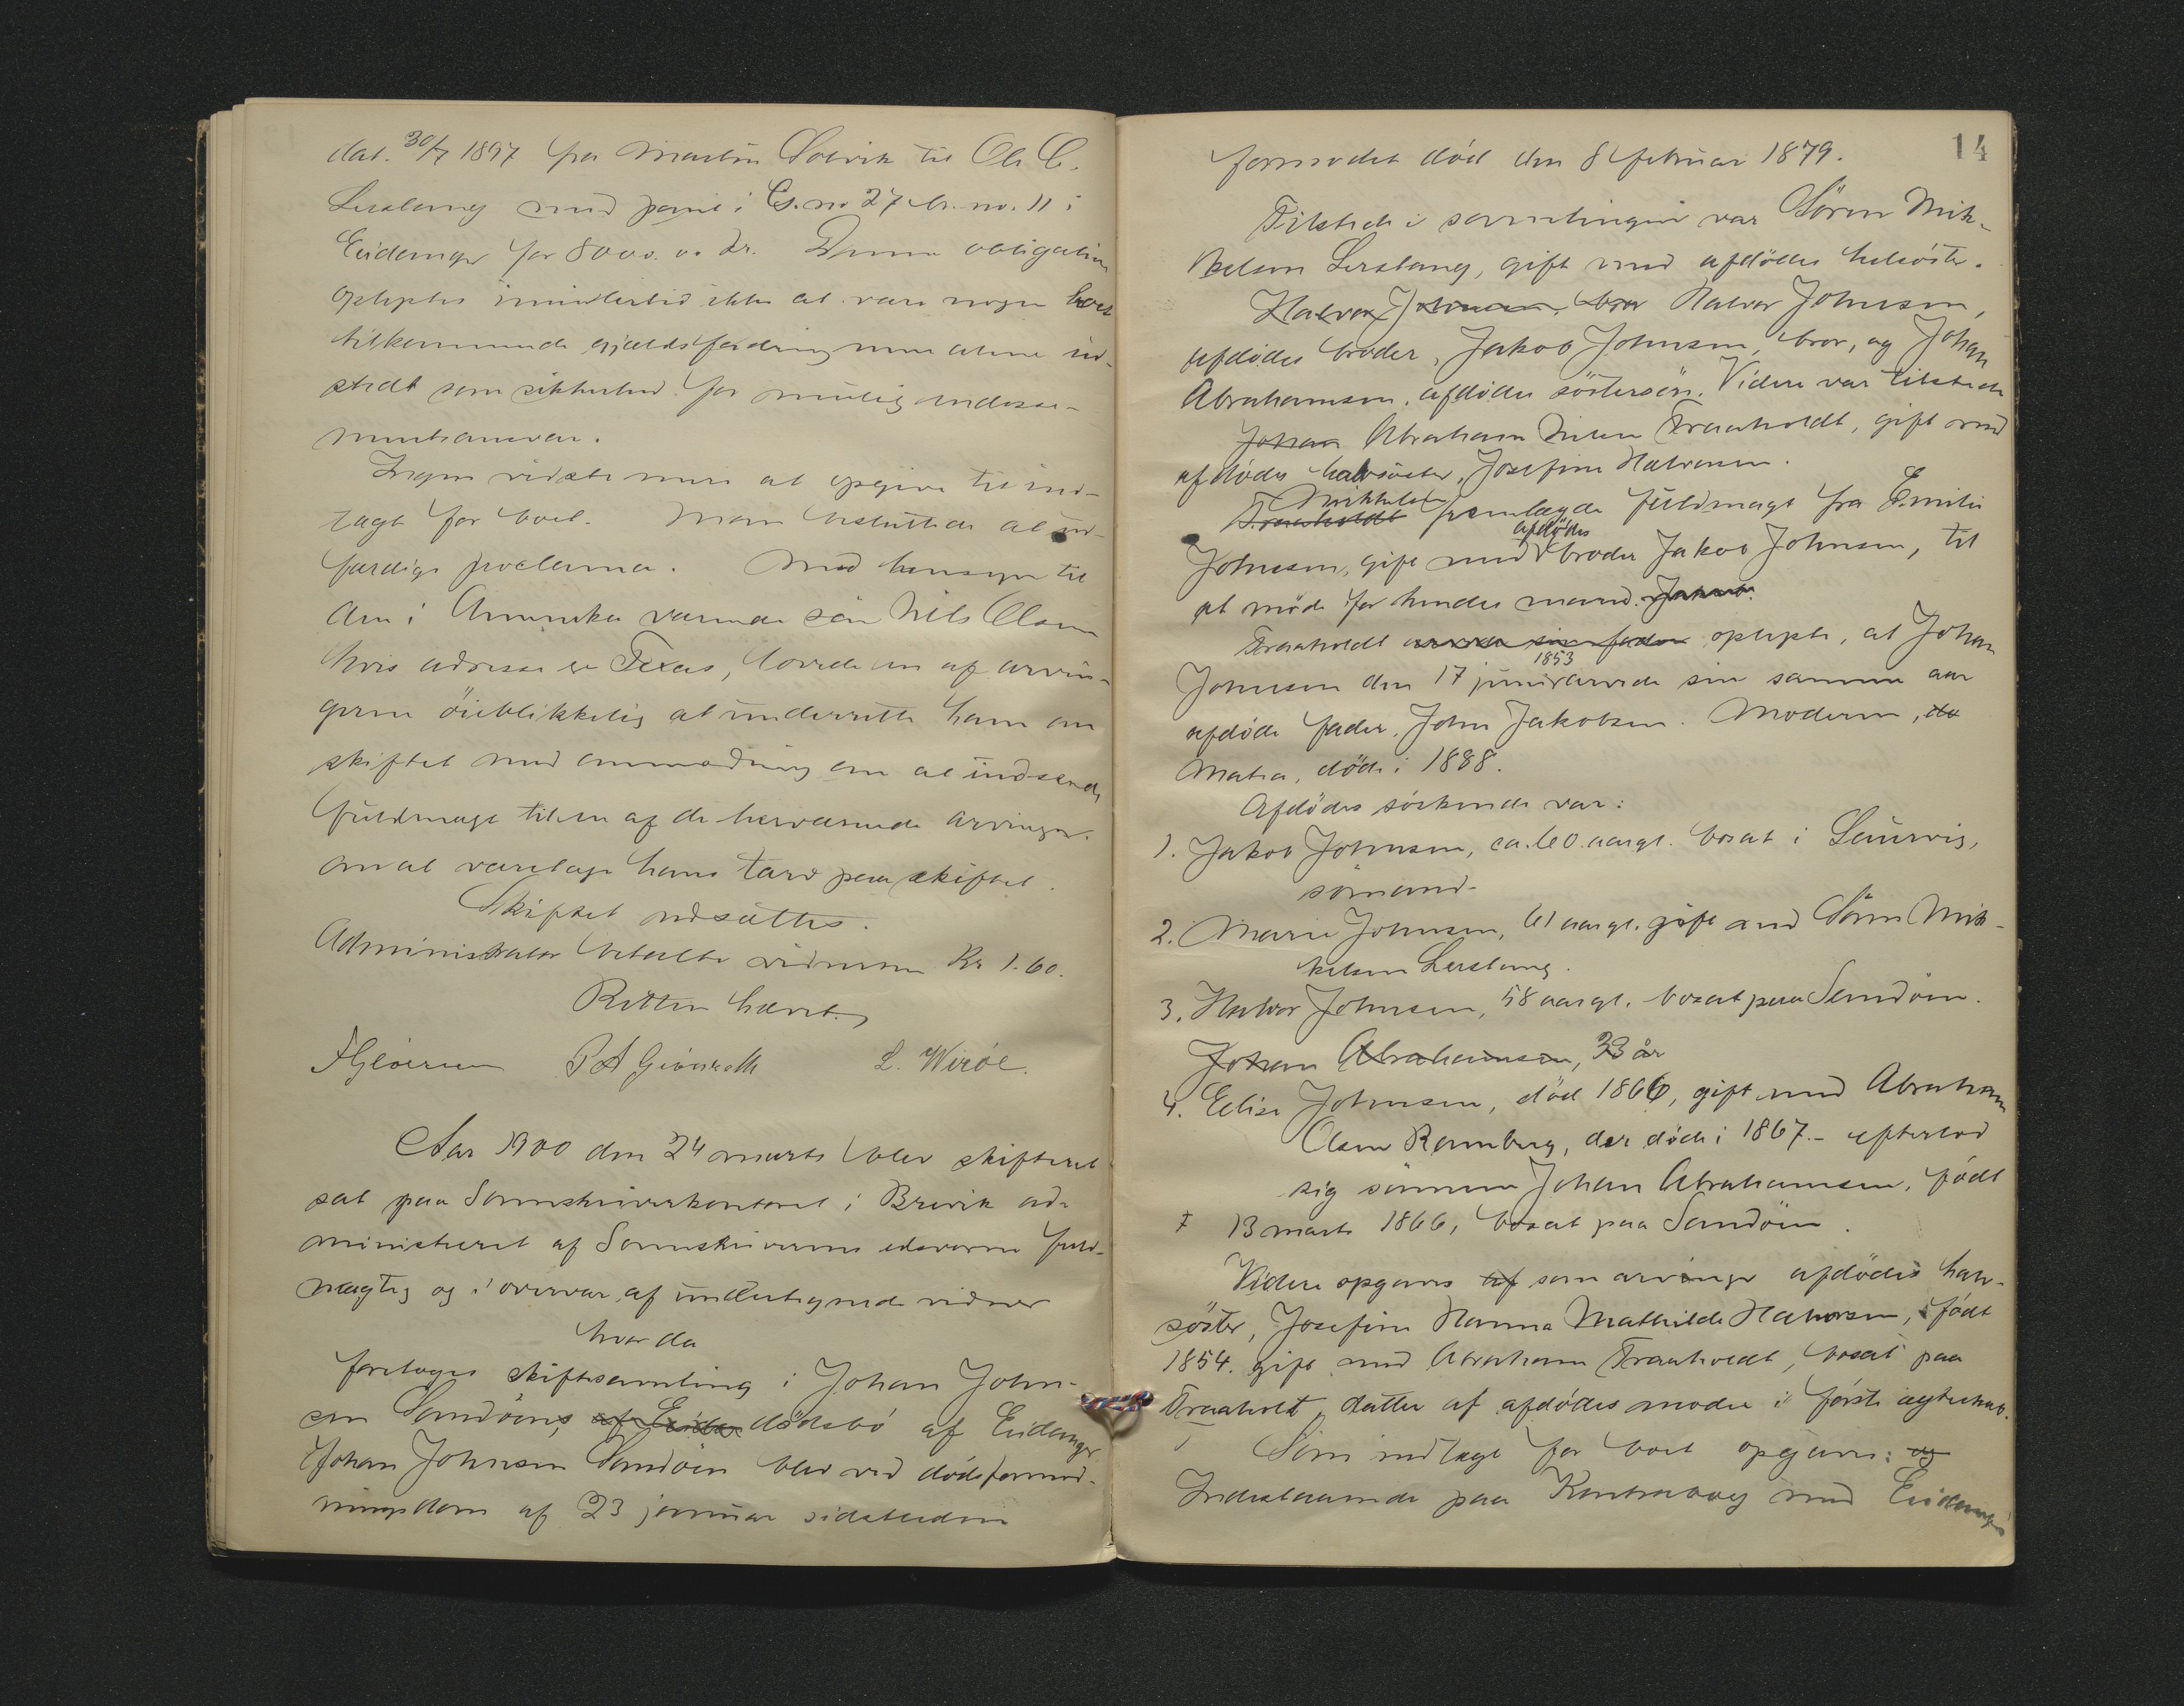 dat. 30/7 1897 fra Martin Solvik til Ole C.
Lerstang med pant i G. no 27 br. no. 11 i
Eidanger for 8000.00 kr. Denne obligation
oplystes imidlertid ikke at være nogen boet
tilkommende gjældsfordring men alene ud-
stedt som sikkerhed for mulig endosse-
mentsansvar.
Ingen vidste mere at opgive til ind-
tægt for boet. Man besluttede at ud-
færdige proclama. Med hensyn til
den i Amerika værende søn Nils Olsen
hvis adresse er Texas, lovede en af arvin-
gerne øieblikkelig at underrette ham om
skiftet med anmodning om at indsende
fuldmagt til en af de herværende arvinger
om at varetage hans tarv paa skiftet.
Skiftet udsattes.
Administrator betalte vidnerne Kr 1.60.
Retten hævet.
P A Gjømseth L. Wirøe.
Aar 1900 den 24 marts blev skifteret
sat paa Sorenskriverkontoret i Brevik ad-
ministreret af Sorenskriverens edsvorne fuld-
mægtig og i overvær af undertegnede vidner
hvor da
foretoges skiftesamling i Johan John-
sen Sandøens af Eidan dødsbo af Eidanger
Johan Johnsen Sandøen blev ved dødsformod-
ningsdom af 23 januar sidstleden
14
formodet død den 8 februar 1879.
Tilstede i samlingen var Søren Mik-
kelsen Lerstang, gift med afdødes helsøster.
Halvor Johnsen, bror Halvor Johnsen,
afdødes broder, Jakob Johnsen, bror, og Johan
Abrahamsen, afdødes søstersøn. Videre var tilstede
Johan Abraham Nilsen Traaholdt, gift med
afdødes halvsøster, Josefine Halvorsen.
Mikkelsen
Traaholdt fremlagde fuldmagt fra Emilie
afdødes
Johnsen, gift med broder Jakob Johnsen, til
at møde for hendes mand. Johan
Traaholdt arvede sin fader oplyste, at Johan
1853
Johnsen den 17 juni arvede sin samme aar
afdøde fader, John Jakobsen. Moderen, do
Maria, døde i 1888.
Afdødes søskende var:
1. Jakob Johnsen, ca. 60 aar gl. bosat i Laurvig,
sømand.
2. Marie Johnsen, 61 aar gl. gift med Søren Mik-
kelsen Lerstang.
3. Halvor Johnsen, 58 aar gl. bosat paa Sandøen.
Johan Abrahamsen, 33 år
4. Elise Johnsen, død 1866, gift med Abraham
Olsen Ramberg, der døde i 1867. - efterlod
sig sønnen Johan Abrahamsen, født
13 marts 1866, bosat paa Sandøen.
Videre opgaves af som arvinge afdødes halv-
søster, Josefine Hanna Mathilde Halvorsen, født
1854. gift med Abraham Traaholdt, bosat paa
Traaholt, datter af afdødes moder i første ægteskab.
Som indtægt for boet opgaves: og
Indestaaende paa Kontrabog med Eidangers